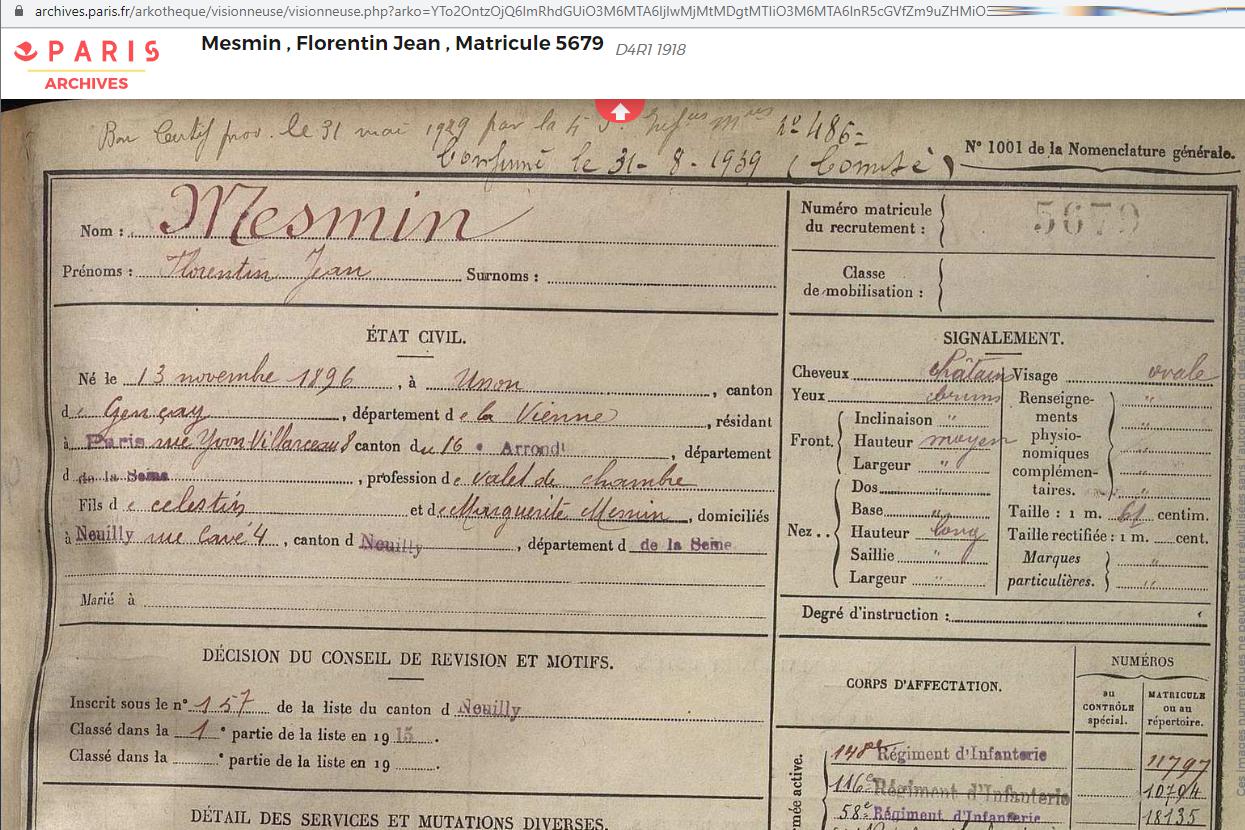 archives.paris.fr/arkotheque/visionneuse/visionneuse.php?arko=YTo2OntzOjQ6ImRhdGUiO3M6MTA6IjIwMjMtMDgtMTIiO3M6MTA6InR5cGVfZm9uZHMiO
PARIS
ARCHIVES
Mesmin , Florentin Jean , Matricule 5679 D4R1 1918
Bon Certif prov. le 31 mai 1929 par la nº 486
Confirmé le 31-8-1939 (Comité)
N° 1001 de la Nomenclature générale.
Nom : Mesmin
Prénoms : Florentin Jean Surnoms :
Numéro matricule du recrutement : 5679
Classe de mobilisation :
ÉTAT CIVIL.
Né le 13 novembre 1896, à Usson, canton
de Gençay, département de la Vienne, résidant
à Paris rue Yvon Villarceau 8 canton du 16 e Arrondt, département
d de la Seine, profession de valet de chambre
Fils de celestin et de Marguerite Mesmin, domiciliés
à Neuilly rue Cavé 4, canton d Neuilly, département d de la Seine
Marié à
SIGNALEMENT.
Cheveux châtain Visage ovale
Yeux bruns
Front. Inclinaison "
Hauteur moyen
Largeur "
Nez.. Dos
Base "
Hauteur long
Saillie "
Largeur "
Renseignements physionomiques complémentaires. "
Taille : 1 m. 61 centim.
Taille rectifiée : 1 m. cent.
Marques particulières. "
Degré d'instruction :
DÉCISION DU CONSEIL DE REVISION ET MOTIFS.
Inscrit sous le n° 157 de la liste du canton d Neuilly
Classé dans la 1e partie de la liste en 1915.
Classé dans la e partie de la liste en 19 .
DÉTAIL DES SERVICES ET MUTATIONS DIVERSES.
CORPS D'AFFECTATION.
NUMÉROS
au CONTRÔLE spécial.
MATRICULE ou au répertoire.
mée active.
148e Régiment d'Infanterie 11797
116e Régiment d'Infanterie 10794
58e Régiment d'Infanterie 18135
Ces images numériques ne peuvent être réutilisées sans l'autorisation des Archives de Paris